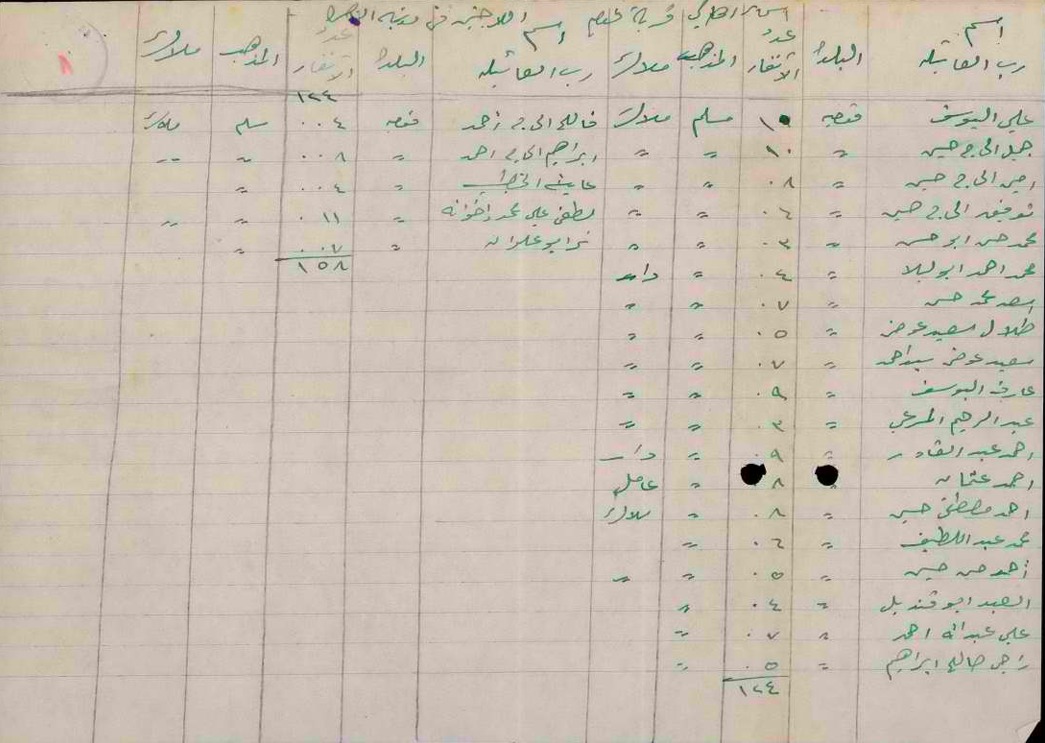 اسماء اهالي قرية قنصه اللاجئين في مدينة
اسم رب العائلة البلد عدد الأنفار المذهب ملاك اسم رب العائلة البلد عدد الأنفار المذهب ملاك
١٢٤
علي اليوسف ١٠ مسلم ملاك فالح الحاج احمد ٠٠٤ مسلم ملاك
جميل الحاج حسين " ١٠ " " ابراهيم الحاج احمد " ٠٠٨ " "
امين الحاج حسين " ٠٨ " " عايشه الخطيب " ٠٠٤ "
توفيق الحاج حسين " ٠٦ " " لطفي علي محمد واخوانه " ٠١١ " "
محمد حسن ابو حسن " ٠٣ " " ابو علوان " ٠٠٧ "
١٥٨
محمد احمد ابو ليلا " ٠٤ "
اسعد محمد حسن " ٠٧ " "
طلال سعيد عوض " ٠٥ " "
سعيد عوض سيد احمد " ٠٧ " "
عارف اليوسف " ٠٩ " "
عبد الرحيم المرعي " ٠٣ " "
احمد عبد القادر " ٠٩ "
احمد عثمان ٨ " عامل
احمد مصطفى حسين " ٠٨ " ملاك
محمد عبد اللطيف " ٠٦ "
احمد حسن حسين " ٠٥ " "
العبد ابو قنديل " ٠٤ "
علي عبدالله احمد " ٠٧ "
راجي صالح ابراهيم " ٠٥ "
١٢٤